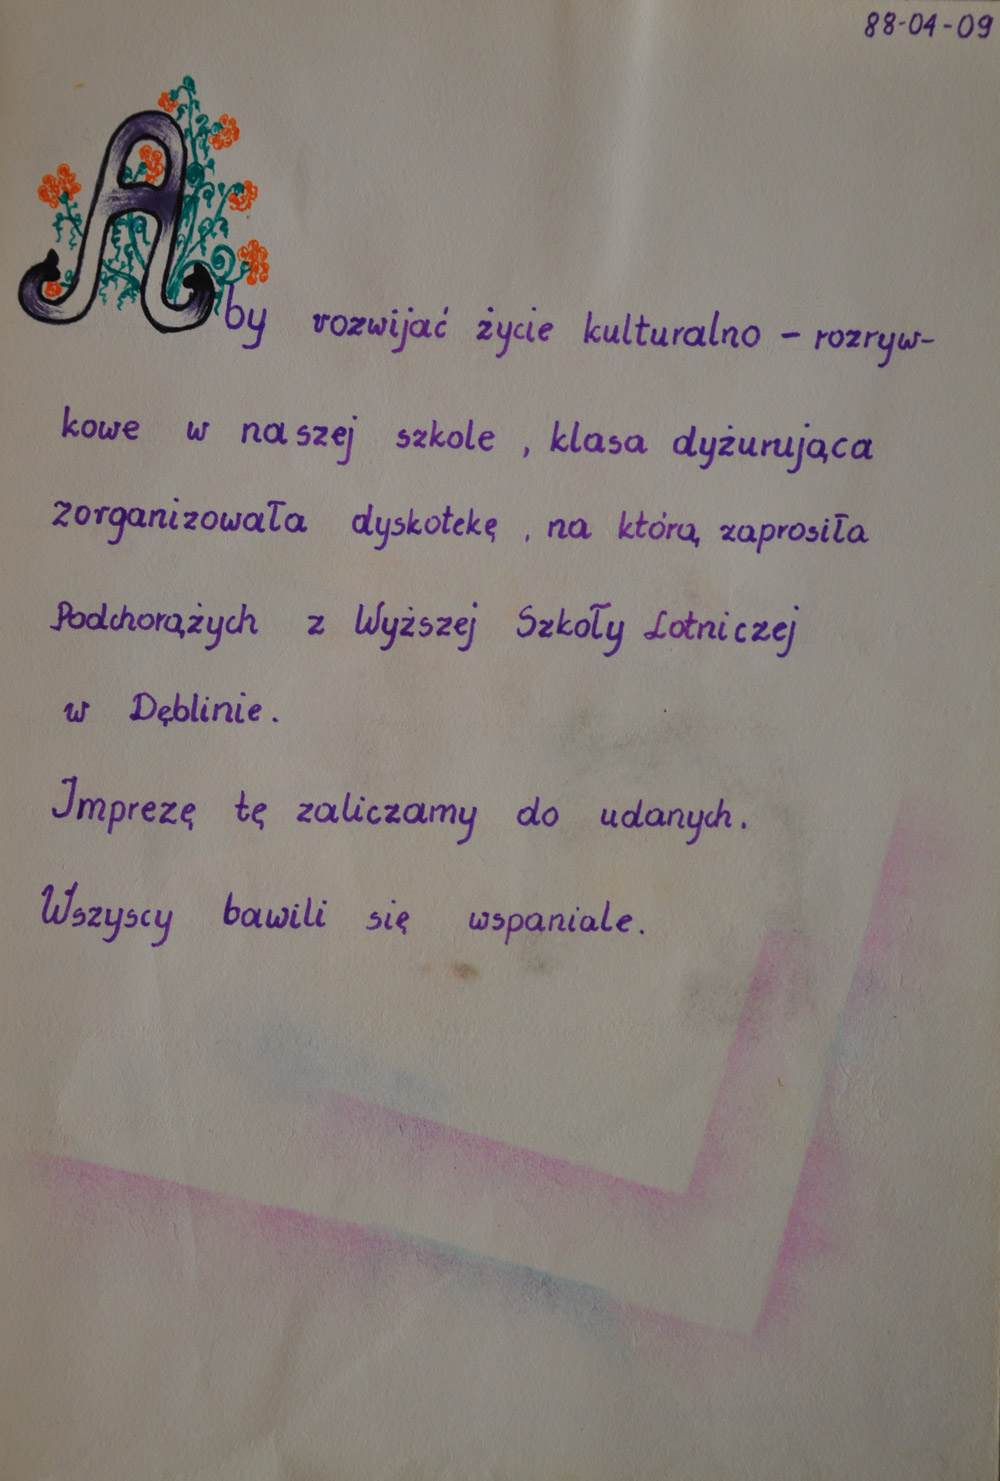 88-04-09
Aby rozwijać życie kulturalno - rozryw-
kowe w naszej szkole , klasa dyżurująca
zorganizowała dyskotekę , na którą zaprosiła
Podchorążych z Wyższej Szkoły Lotniczej
w Dęblinie.
Imprezę tę zaliczamy do udanych.
Wszyscy bawili się wspaniale.